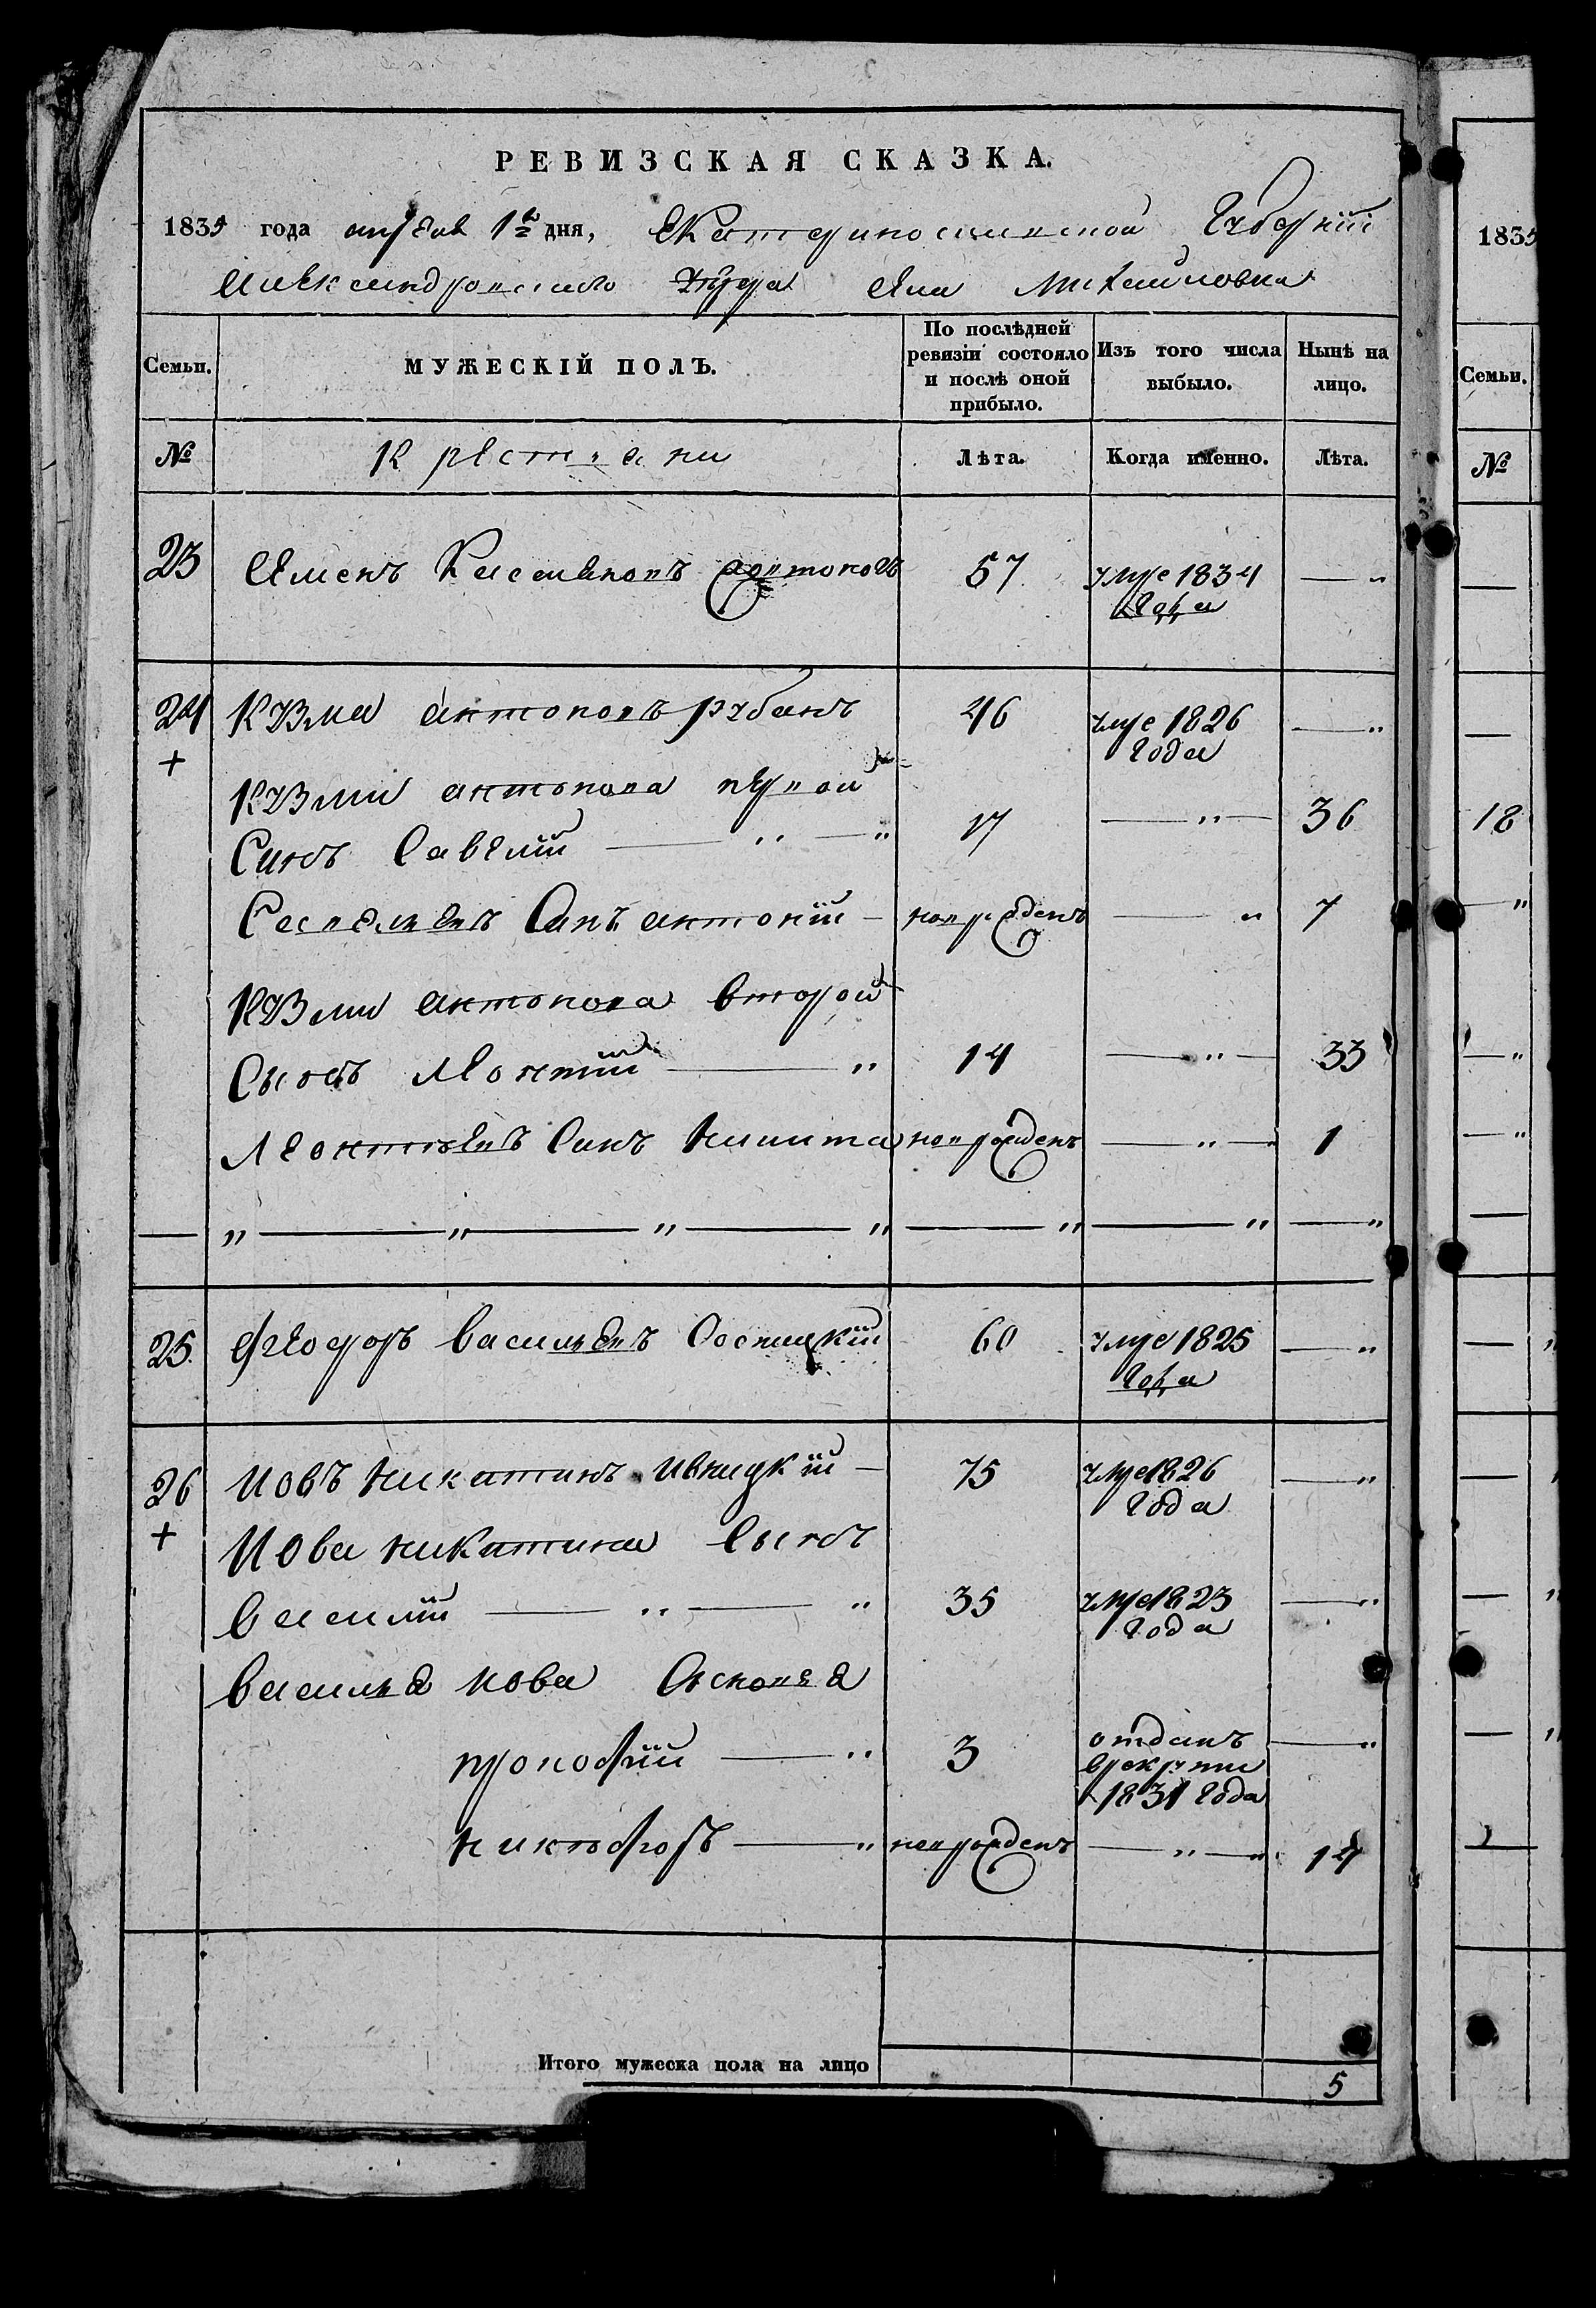 РЕВИЗСКАЯ СКАЗКА.
1835 года апреля 1го дня, Екатеринославской Губерніи
Александровского Уезда Села Михайловки
Семьи. МУЖЕСКІЙ ПОЛЪ. По послѣдней ревизіи состояло и послѣ оной прибыло. Изъ того числа выбыло. Нынѣ на лицо.
№ Крестьяне Лѣта. Когда именно. Лѣта.
23 Семенъ 57 умре 1834 года — „
24 Кузма антоновъ рубанъ 46 умре 1826 года — „
+
Кузми антонова первой
Синъ Савелій — „ — „ 17 — „ — 36
Савельевъ Синъ антоній — новорожденъ — „ 7
Кузми антонова второй
Сынъ Леонтій — „ 14 — „ — 33
Леонтьевъ Синъ Никита новорожденъ — „ — 1
— „ — „ — „ — „ — „ — „ — „
25. Феодоръ Васильевъ 60 умре 1825 года — „
26 Иовъ Никитинъ Ивницкій — 75 умре 1826 года — „
+
Иова Никитина Сынъ
Василій — „ — „ 35 умре 1823 года — „
Василья Иова Сыновья
прокофій — „ 3 отданъ врекрути 1831 года — „
Никифоръ — „ новорожденъ — „ — „ 14
Итого мужеска пола на лицо 5
1835
Семьи.
№
18